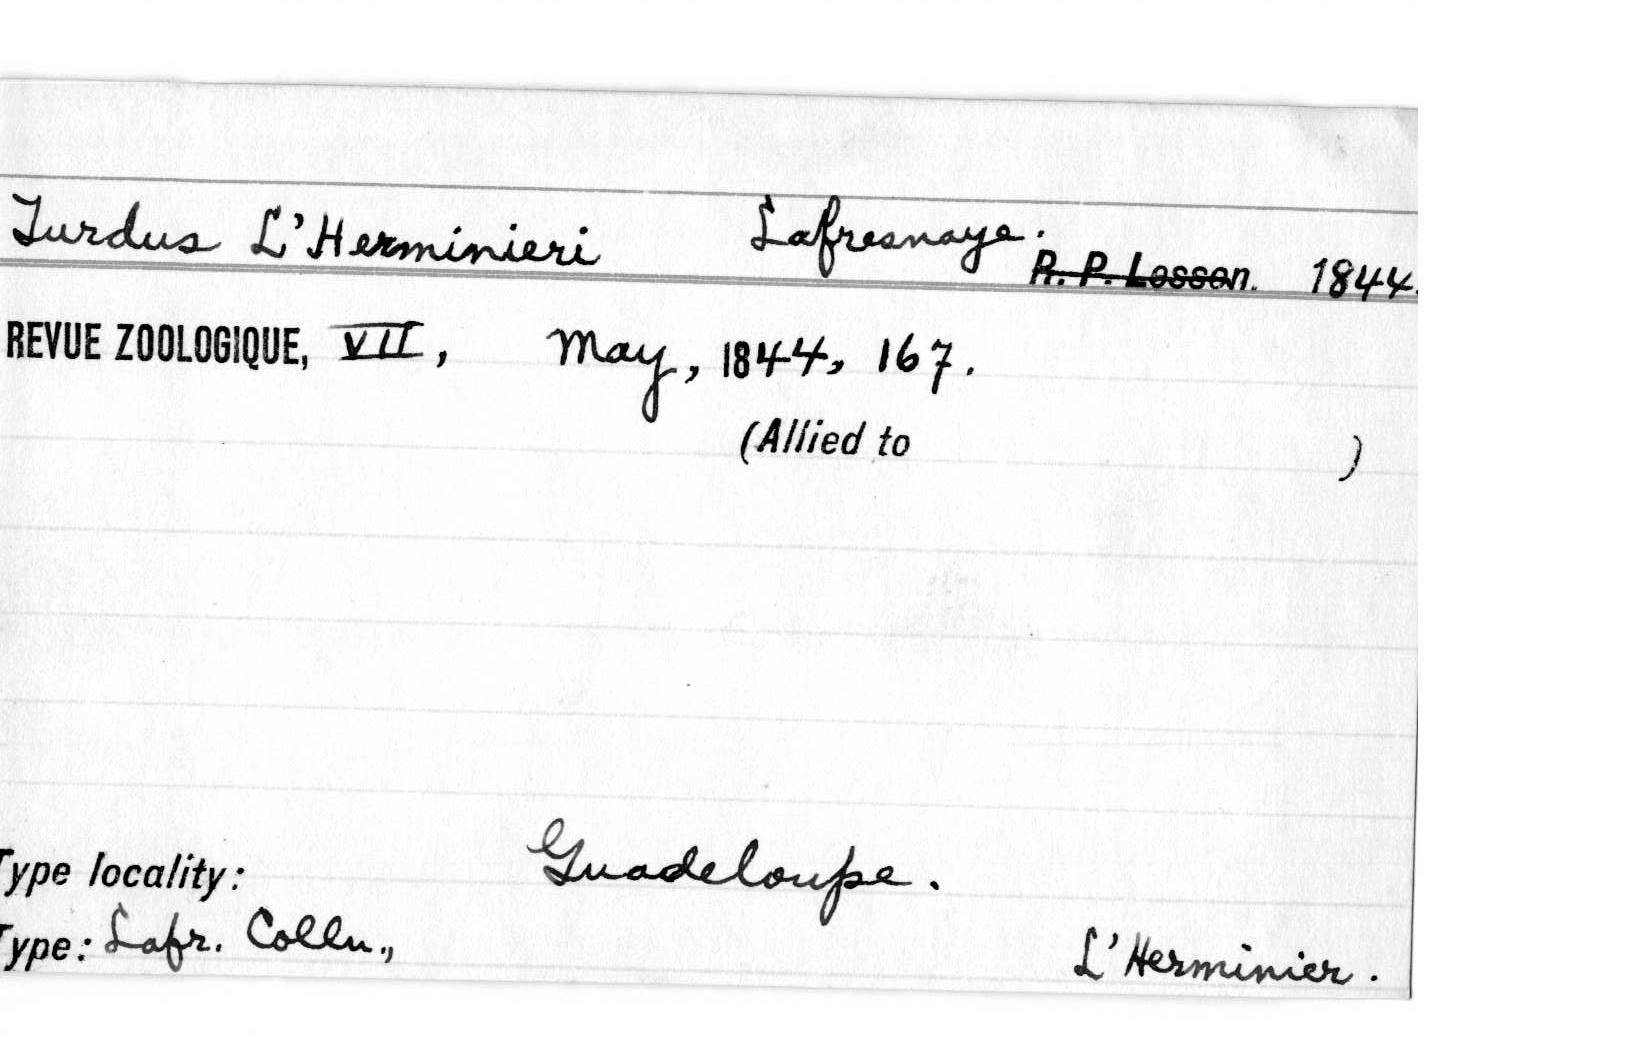 Turdus L'Herminieri Lafresnaye. R. P. Lesson. 1844.
REVUE ZOOLOGIQUE, VII, May, 1844, 167.
(Allied to )
Type locality: Guadeloupe.
Type: Lafr. Colln., L'Herminier.